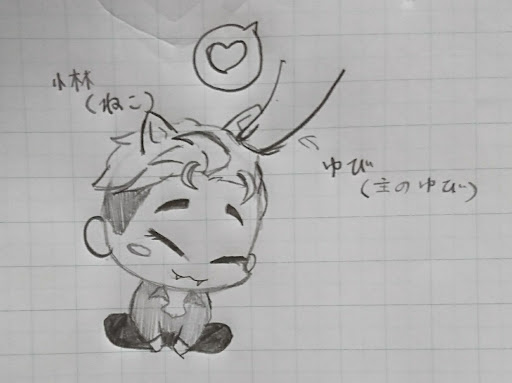 小林
(ねこ)
ゆび
(主のゆび)